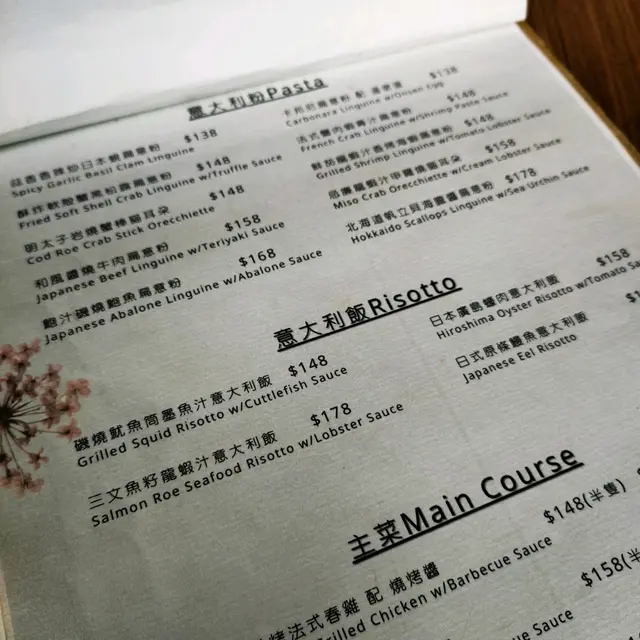 意大利粉Pasta
$138
Spicy Garlic Basil Clam Linguine
$148
Fried Soft Shell Crab Linguine w/Truffle Sauce
明太子岩燒蟹棒貓耳朵 $148
Cod Roe Crab Stick Orecchiette
和風醬燒牛肉扁意粉 $158
Japanese Beef Linguine w/Teriyaki Sauce
鮑汁磯燒鮑魚扁意粉 $168
Japanese Abalone Linguine w/Abalone Sauce
$138
Carbonara Linguine w/Onsen Egg
$148
French Crab Linguine w/Shrimp Paste Sauce
$148
Grilled Shrimp Linguine w/Tomato Lobster Sauce
$158
Miso Crab Orecchiette w/Cream Lobster Sauce
北海道帆立貝海膽醬扁意粉 $178
Hokkaido Scallops Linguine w/Sea Urchin Sauce
意大利飯Risotto
磯燒魷魚筒墨魚汁意大利飯 $148
Grilled Squid Risotto w/Cuttlefish Sauce
三文魚籽龍蝦汁意大利飯 $178
Salmon Roe Seafood Risotto w/Lobster Sauce
日本廣島蠔肉意大利飯 $158
Hiroshima Oyster Risotto w/Tomato
日式原條鰻魚意大利飯
Japanese Eel Risotto
主菜Main Course
法式春雞 配 燒烤醬 $148(半隻)
Grilled Chicken w/Barbecue Sauce
$158(半